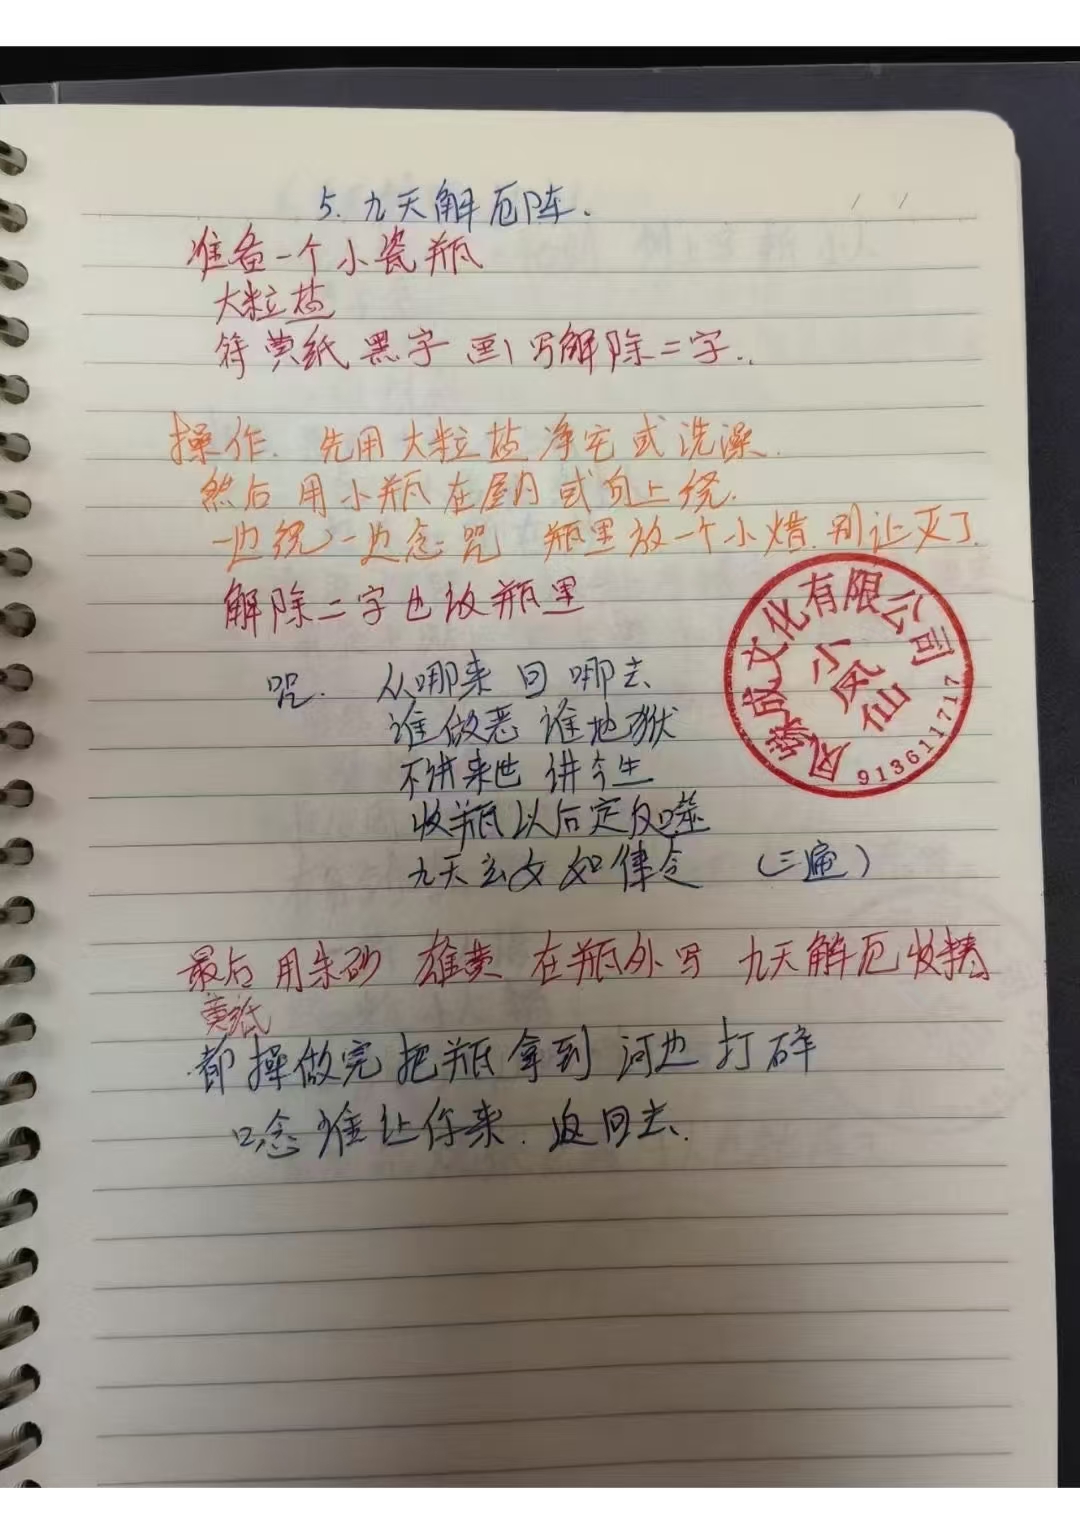 5. 九天解厄阵.
准备一个小瓷瓶
大粒盐
符 黄纸 黑字 画写解除二字..
操作. 先用大粒盐净宅或洗澡.
然后用小瓶在屋内或身上绕.
一边绕一边念咒 瓶里放一个小蜡.别让灭了.
解除二字也放瓶里
咒. 从哪来回哪去
谁做恶谁地狱
不讲来世讲今生
收瓶以后定反噬
九天玄女如律令 (三遍)
最后用朱砂 雄黄 在瓶外写 九天解厄收
黄纸
都操做完把瓶拿到河边打碎
口念谁让你来.返回去.
凤缘成文化有限公司
小凤仙
913611717